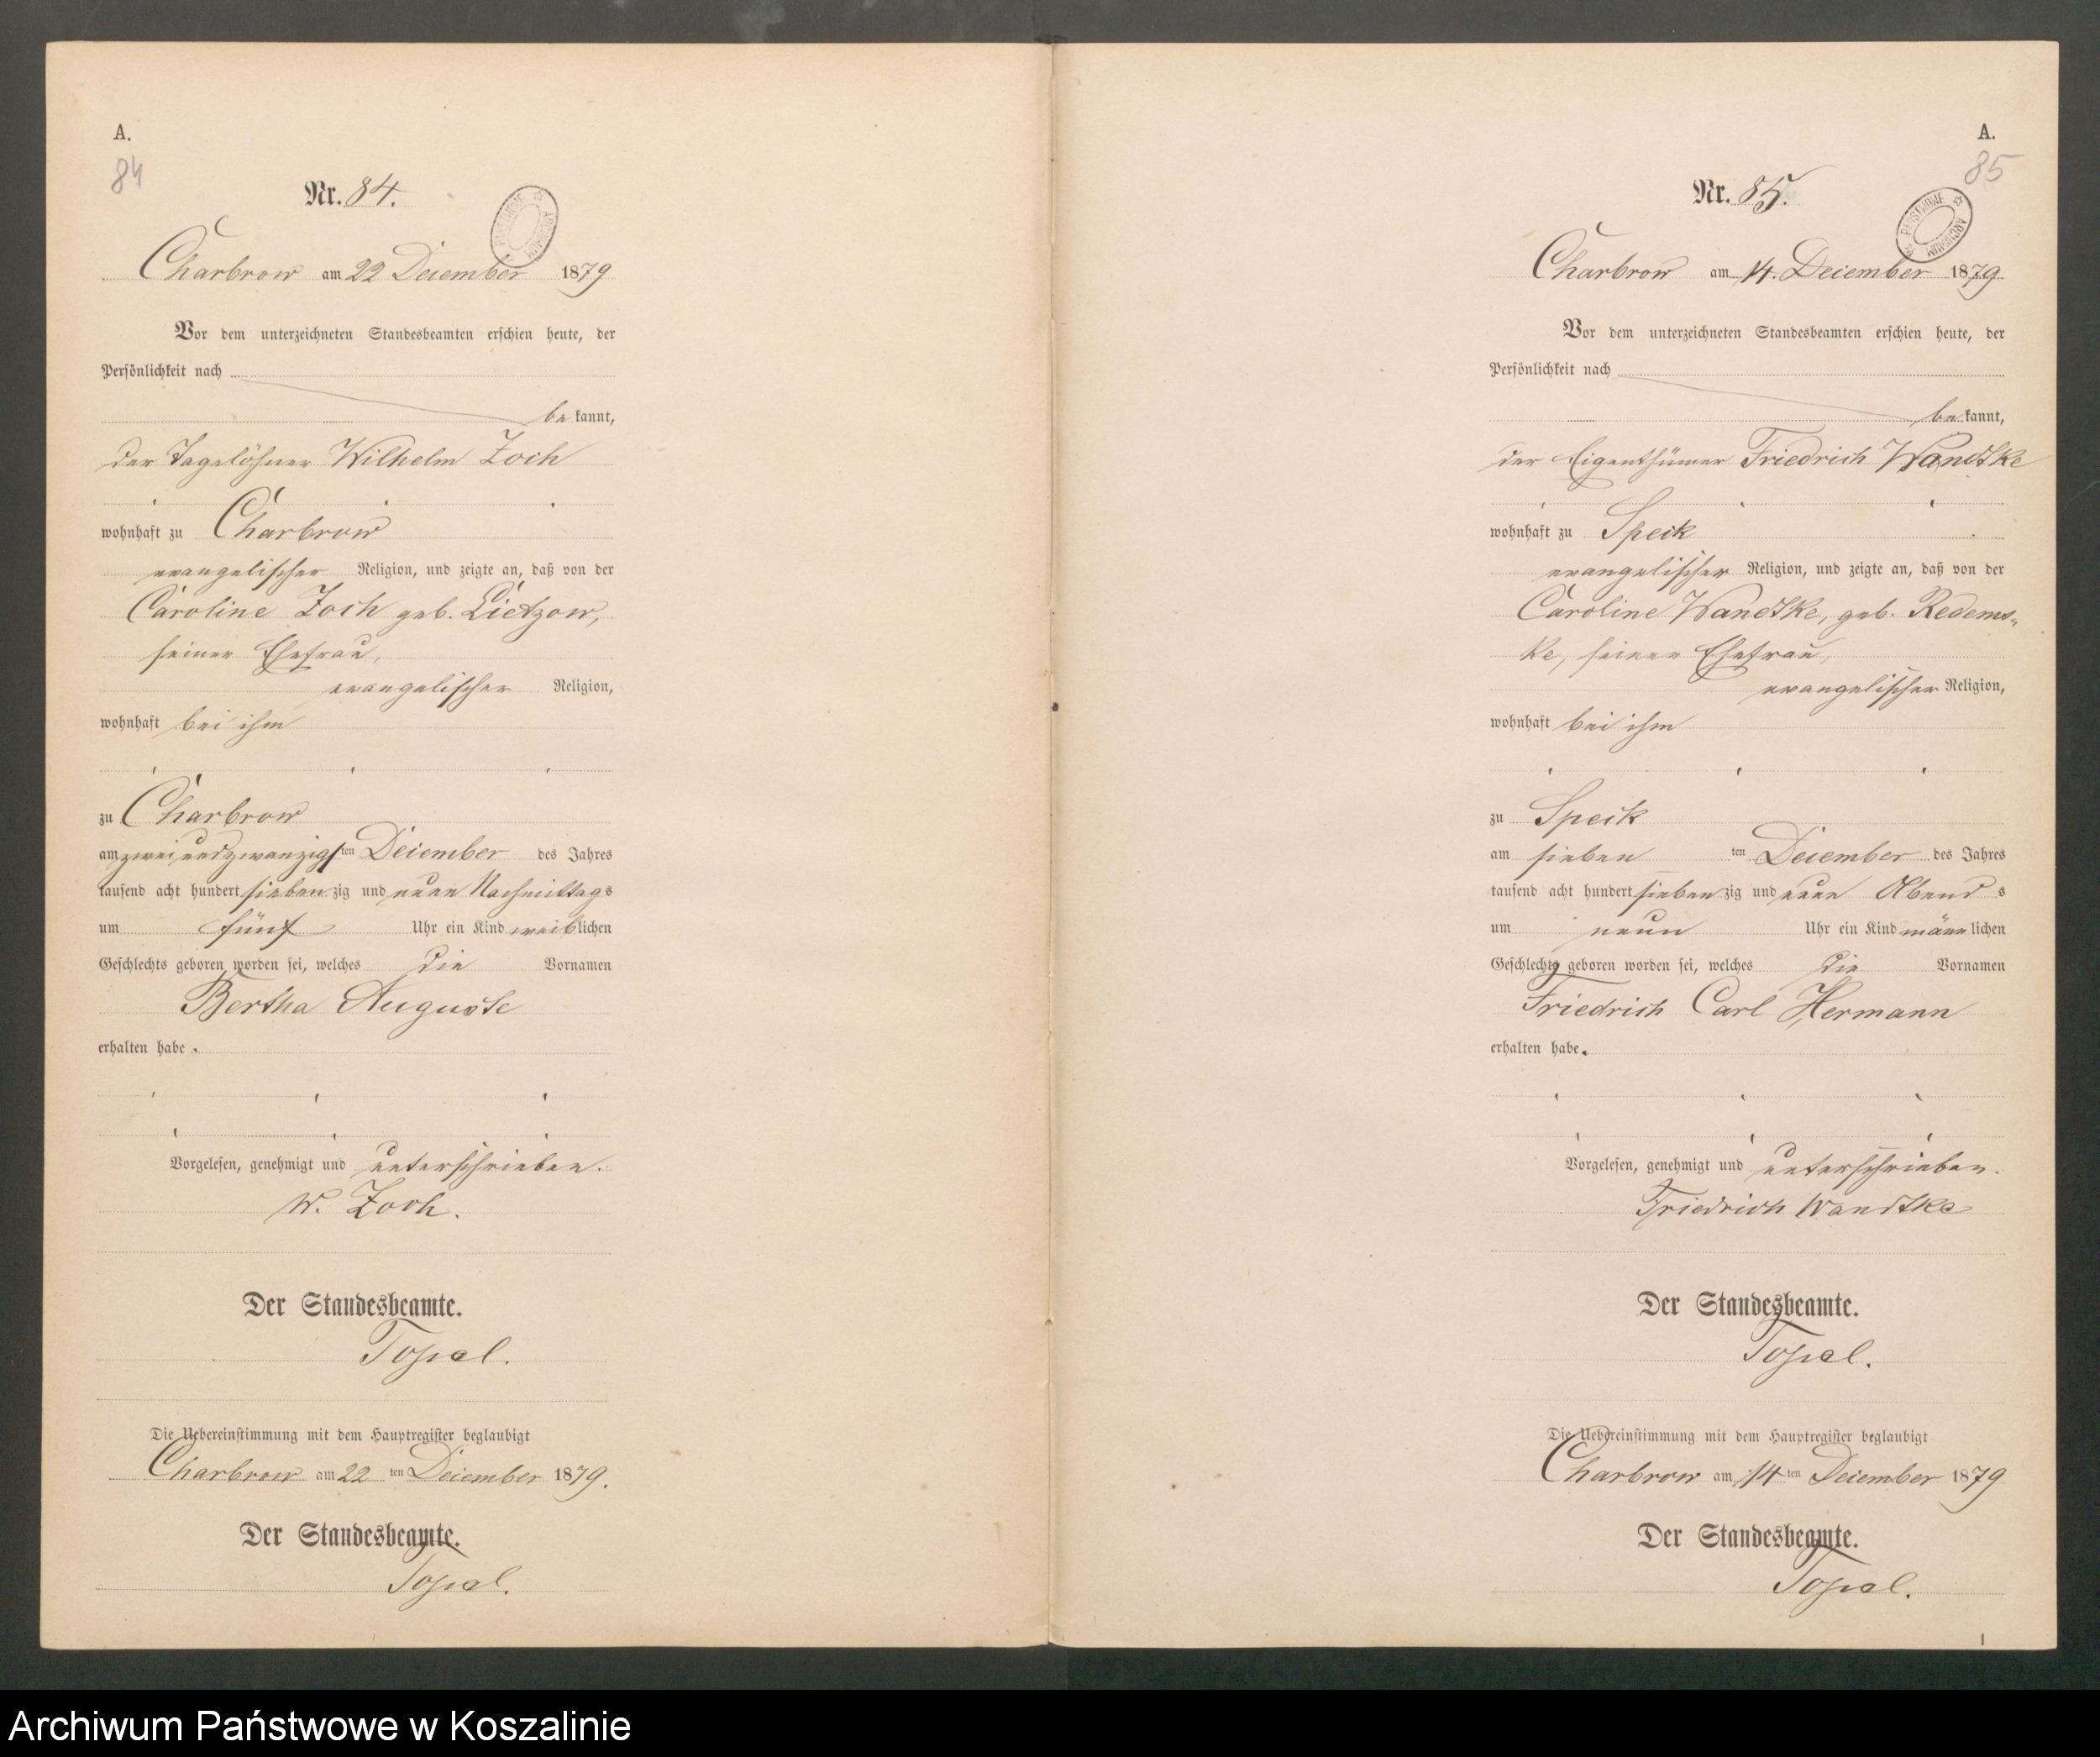 A.
84
Nr. 84.
Charbrow am 22 December 1879
Vor dem unterzeichneten Standesbeamten erschien heute, der
Persönlichkeit nach
bekannt,
der Tagelöhner Wilhelm Zoch
wohnhaft zu Charbrow
evangelischer Religion, und zeigte an, daß von der
Caroline Zoch geb. Lietzow,
seiner Ehefrau,
evangelischer Religion,
wohnhaft bei ihm
zu Charbrow
am zwei und zwanzigsten December des Jahres
tausend acht hundert siebenzig und neun Nachmittags
um fünf Uhr ein Kind weiblichen
Geschlechts geboren worden sei, welches die Vornamen
Bertha Auguste
erhalten habe.
Vorgelesen, genehmigt und unterschrieben.
W. Zoch.
Der Standesbeamte.
Topel.
Die Uebereinstimmung mit dem Hauptregister beglaubigt
Charbrow am 22ten December 1879.
Der Standesbeamte.
Topel.
A.
85
Nr. 85.
PAŃSTWOWE ARCHIWUM
Charbrow am 14. December 1879
Vor dem unterzeichneten Standesbeamten erschien heute, der
Persönlichkeit nach
bekannt,
der Eigenthümer Friedrich Wandtke
wohnhaft zu Speck
evangelischer Religion, und zeigte an, daß von der
Caroline Wandtke, geb. Redems-
ke, seiner Ehefrau,
evangelischer Religion,
wohnhaft bei ihm
zu Speck
am siebenten December des Jahres
tausend acht hundert siebenzig und neun Abends
um neun Uhr ein Kind männlichen
Geschlechts geboren worden sei, welches die Vornamen
Friedrich Carl Hermann
erhalten habe.
Vorgelesen, genehmigt und unterschrieben.
Friedrich Wandtke
Der Standesbeamte.
Topel.
Die Uebereinstimmung mit dem Hauptregister beglaubigt
Charbrow am 14ten December 1879
Der Standesbeamte.
Topel.
Archiwum Państwowe w Koszalinie